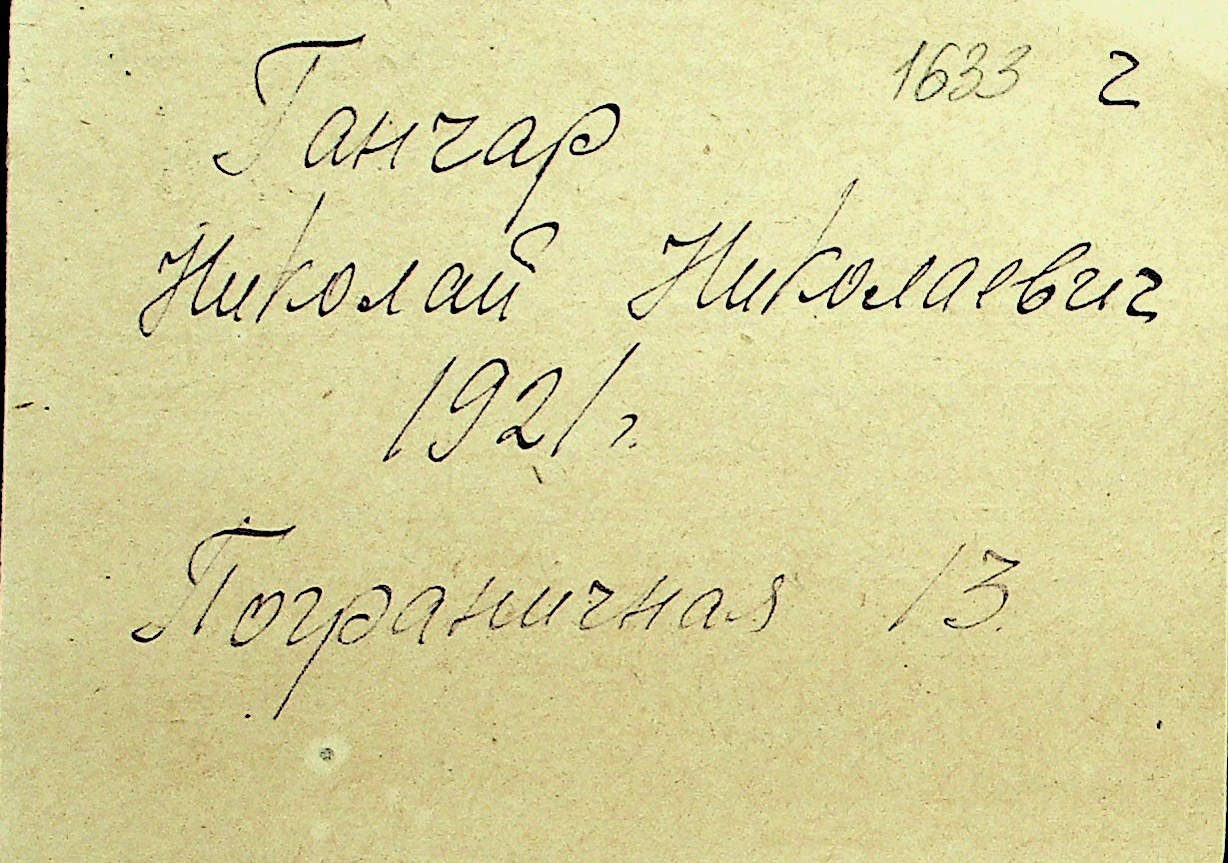 1633 г
Ганчар
Николай Николаевич
1921 г.
Пограничная 13